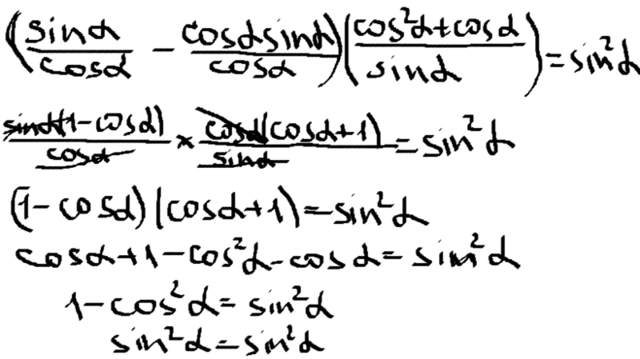 (sinα/cosα − cosαsinα/cosα)((cos²α+cosα)/sinα)=sin²α
sinα(1−cosα)/cosα × cosα(cosα+1)/sinα=sin²α
(1−cosα)(cosα+1)=sin²α
cosα+1−cos²α−cosα=sin²α
1−cos²α=sin²α
sin²α=sin²α